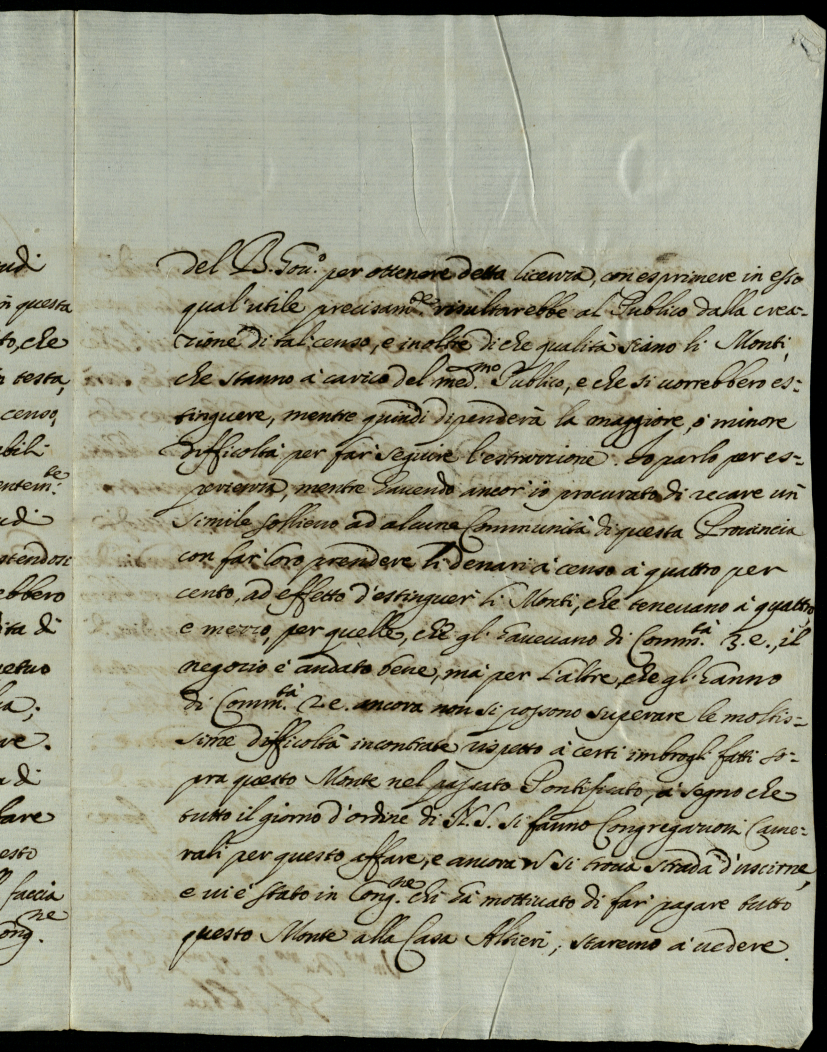 udi
in questa
to, che
testa,
censo,
abili
udi
stendosi
ebbero
ita di
petuo
la;
ve.
a di
fare
esto
faccia
ong.ne
del B. Gou.o per ottenere detta licenza, con esprimere in esso
qual'utile precisam.te risultarebbe al Publico dalla crea=
zione di tal censo, e inoltre di che qualità siano li Monti,
che stanno à carico del med.mo Publico, e che si uorrebbero es=
tinguere, mentre quindi dipenderà la maggiore, ò minore
difficoltà per far seguire l'estinzione. Io parlo per es=
perienza, mentre hauendo ancor'io procurato di recare un
simile sollieuo ad alcune Communità di questa Prouincia
con far loro prendere li denari à censo à quattro per
cento, ad effetto d'estinguer li Monti, che teneuano à quattro
e mezzo, per quelle, che gl'haueuano di Comm.tà 3. e., il
negozio è andato bene, mà per l'altre, che gl'hanno
di Comm.tà 2. e. ancora non si possono superare le moltis=
sime difficoltà incontrate rispetto à certi imbrogli fatti so=
pra questo Monte nel passato Pontificato, à segno che
tutto il giorno d'ordine di N. S. si fanno Congregazioni Came=
rali per questo affare, e ancora ñ si troua strada d'uscirne,
e ui è stato in Cong.ne chi hà mottiuato di far pagare tutto
questo Monte alla Casa Altieri; staremo à uedere.